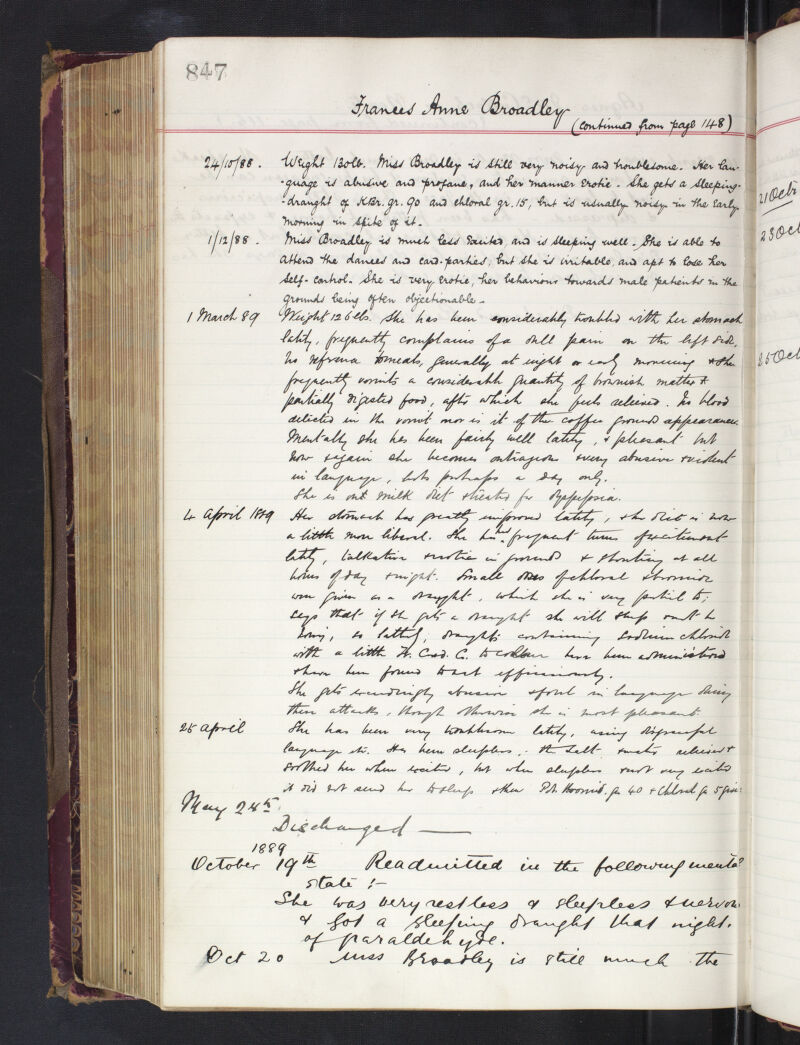 847
Frances Anne Broadley
(continued from page 148)
24/10/88. Weight 130lb. Miss Broadley is still very noisy and troublesome. Her lan-
-guage is abusive and profane, and her manner erotic. She gets a sleeping-
-draught of KBr. gr. 90 and chloral gr. 15, but is usually noisy in the early
morning in spite of it.
1/12/88. Miss Broadley is much less excited, and is sleeping well. She is able to
attend the dances and card-parties, but she is irritable, and apt to lose her
self-control. She is very erotic, her behaviour towards male patients in the
grounds being often objectionable.
1 March 89 Weight 126lbs. She has been considerably troubled with her stomach
lately, frequently complains of a dull pain on the left side,
no reference to meals, generally at night or early morning & she
frequently vomits a considerable quantity of brownish matter &
partially digested food, after which she feels relieved. No blood
detected in the vomit nor is it of the coffee ground appearance.
Mentally she has been fairly well lately, & pleasant but
now & again she becomes outrageous & very abusive & violent
in language, lasts perhaps a day only.
She is on milk diet & treated for dyspepsia.
4 April 1889 Her stomach has greatly improved lately, & her diet is now
a little more liberal. She has had frequent turns of excitement
lately, talkative & erotic in grounds & shouting at all
hours of day & night. Small doses of chloral & bromide
were given as a draught, which she is very partial to;
says that if she gets a draught she will sleep & not be
noisy, so lately, draughts containing Sodium chloride
with a little Tr. Card. C. to colour have been administered
& have been found to act efficaciously.
She gets exceedingly abusive & foul in language during
these attacks, though otherwise she is most pleasant.
25 April She has been very troublesome lately, using disgraceful
language etc. Has been sleepless; the salt water relieved &
soothed her when excited, but when sleepless & not very excited
it did not send her to sleep & then Pot. Bromid. gr 40 & Chloral gr 5 given
May 24th
Discharged
1889
October 19th Readmitted in the following mental
state :-
She was very restless & sleepless & nervous
& got a sleeping draught that night.
of paraldehyde.
Oct 20 Miss Broadley is still much the
21 Oct
23 Oct
25 Oct